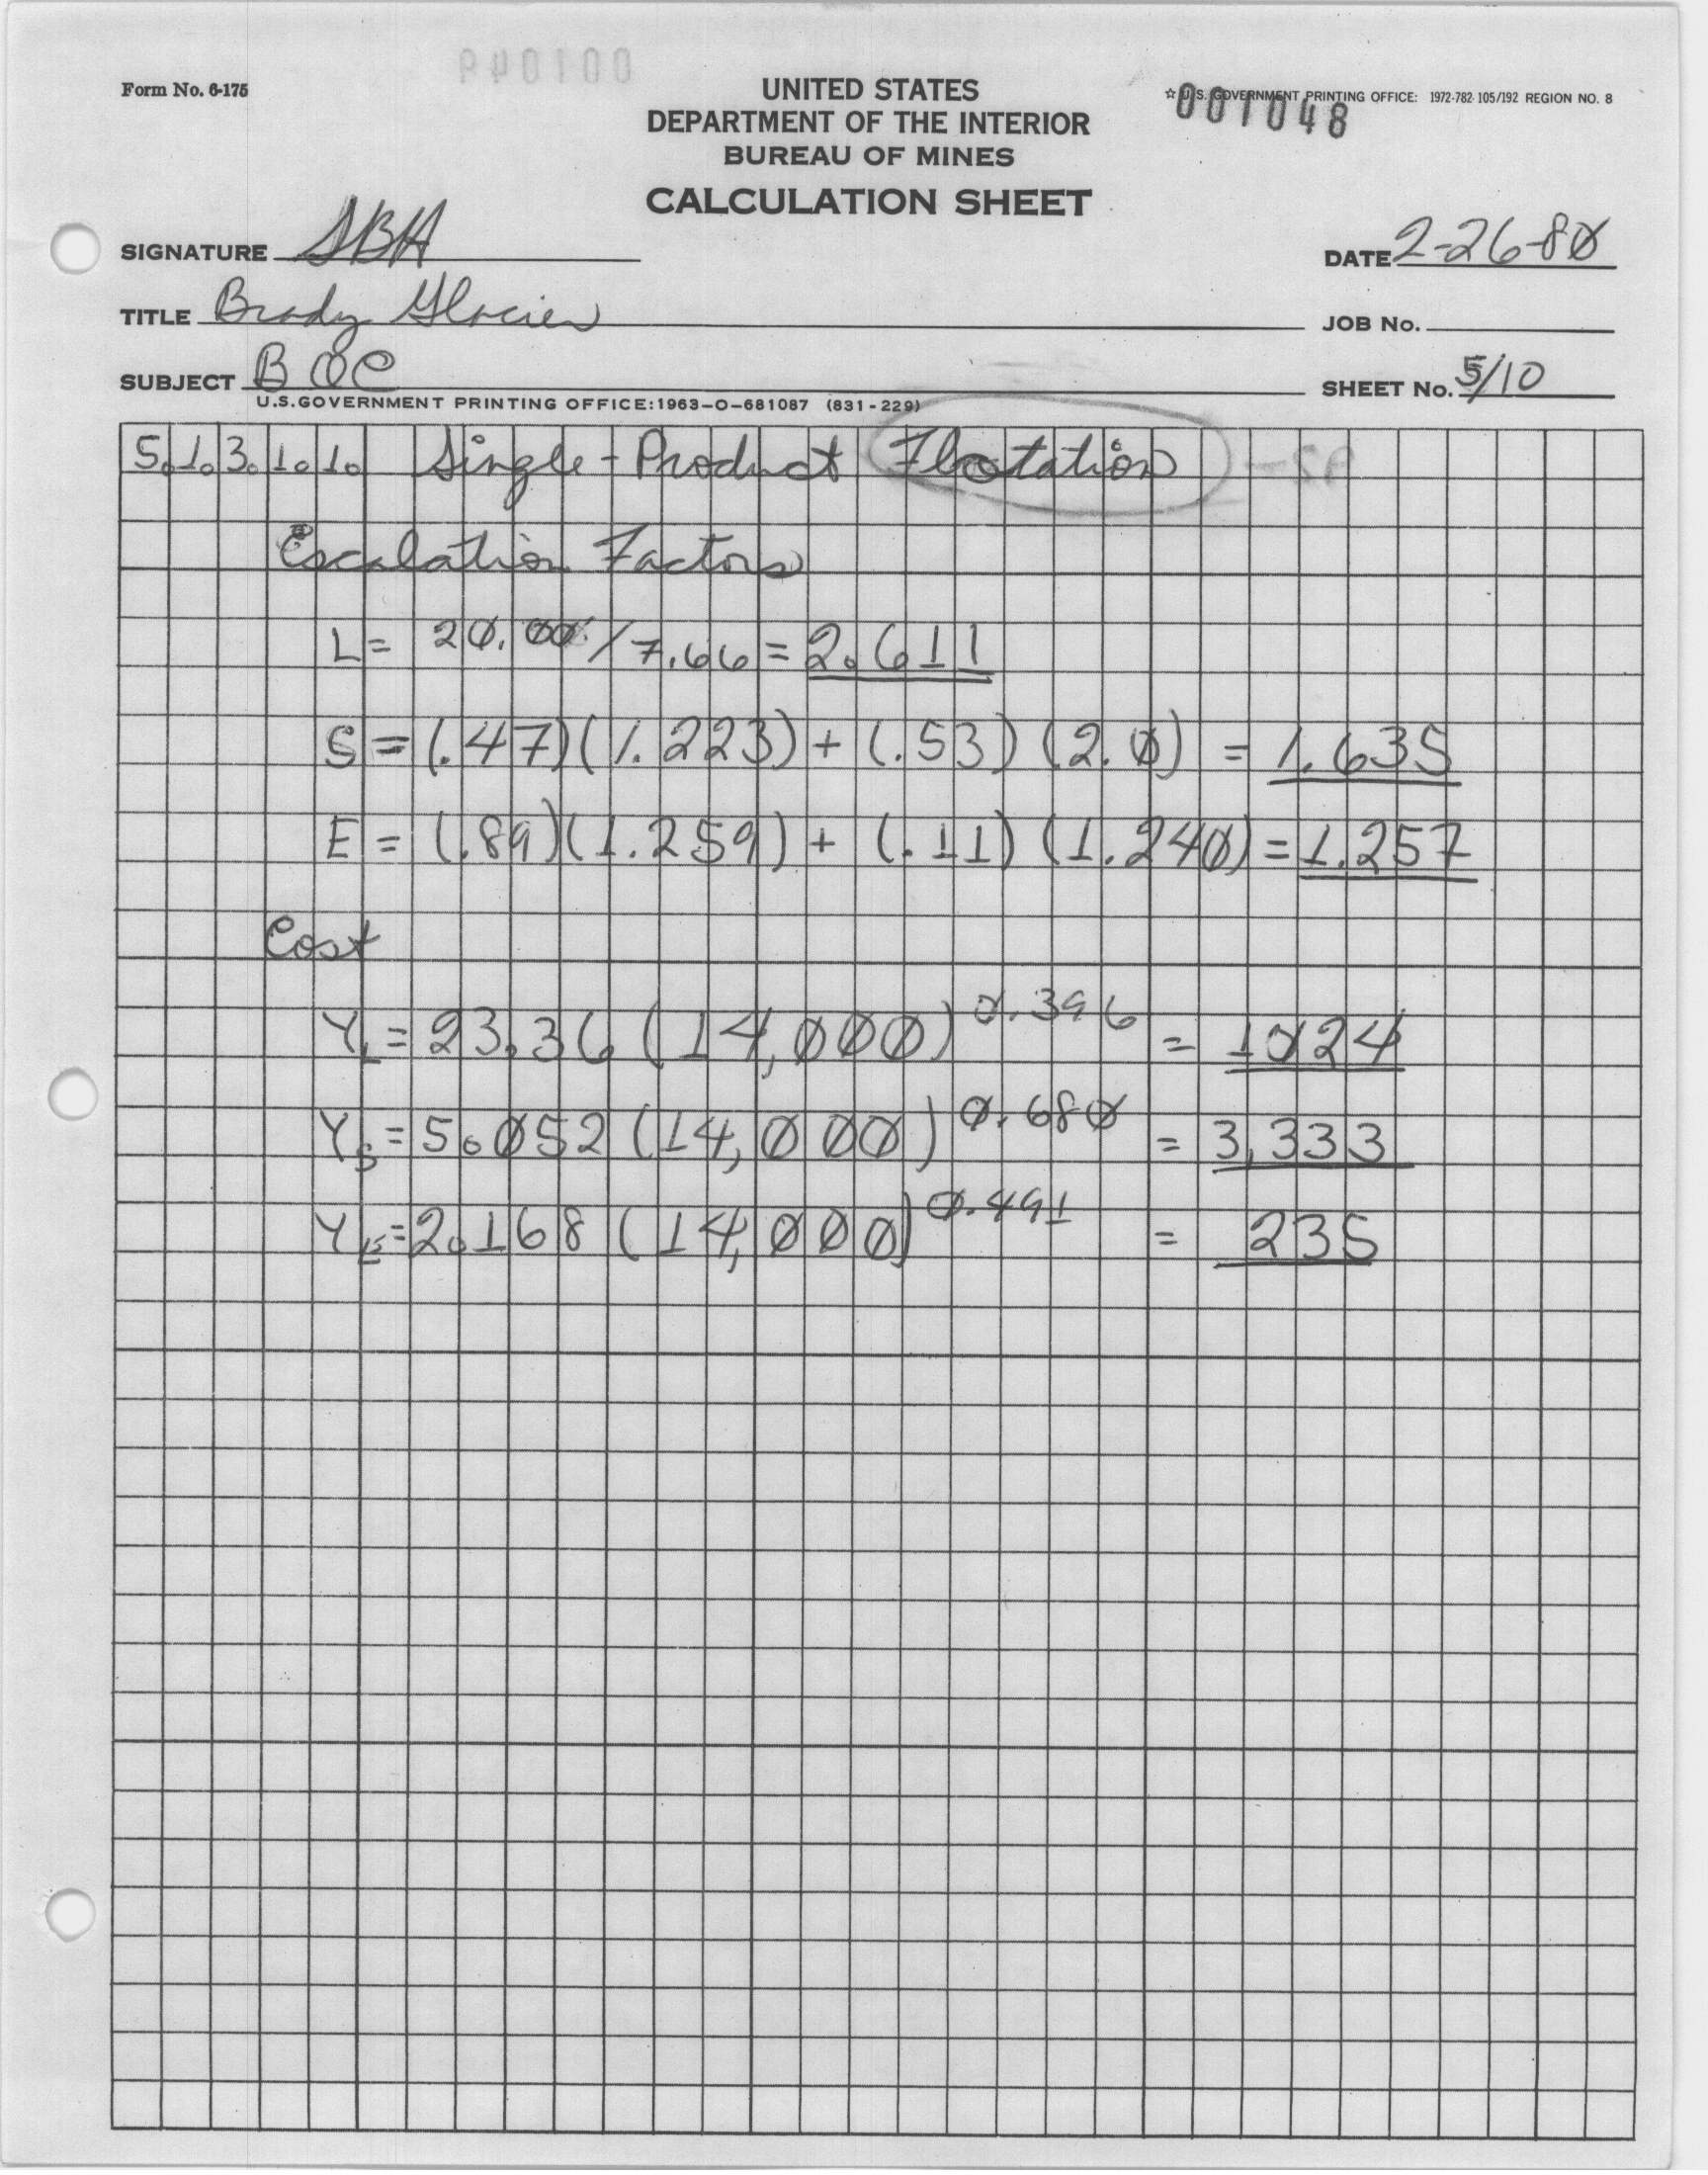 Form No. 6-175
UNITED STATES
DEPARTMENT OF THE INTERIOR
BUREAU OF MINES
CALCULATION SHEET
☆ U.S. GOVERNMENT PRINTING OFFICE: 1972-782-105/192 REGION NO. 8
001048
SIGNATURE SBH
DATE 2-26-80
TITLE Brady Glacier
JOB No.
SUBJECT BOC
SHEET No. 5/10
U.S.GOVERNMENT PRINTING OFFICE:1963-O-681087 (831-229)
5.1.3.1.1. Single-Product Flotation
Escalation Factors
L= 20.00/7.66 = 2.611
S = (.47)(1.223) + (.53) (2.0) = 1.635
E = (.89)(1.259) + (.11) (1.240) = 1.257
Cost
Y_L = 23.36 (14,000)^0.396 = 1024
Y_S = 5.052 (14,000)^0.680 = 3,333
Y_E = 2.168 (14,000)^0.491 = 235